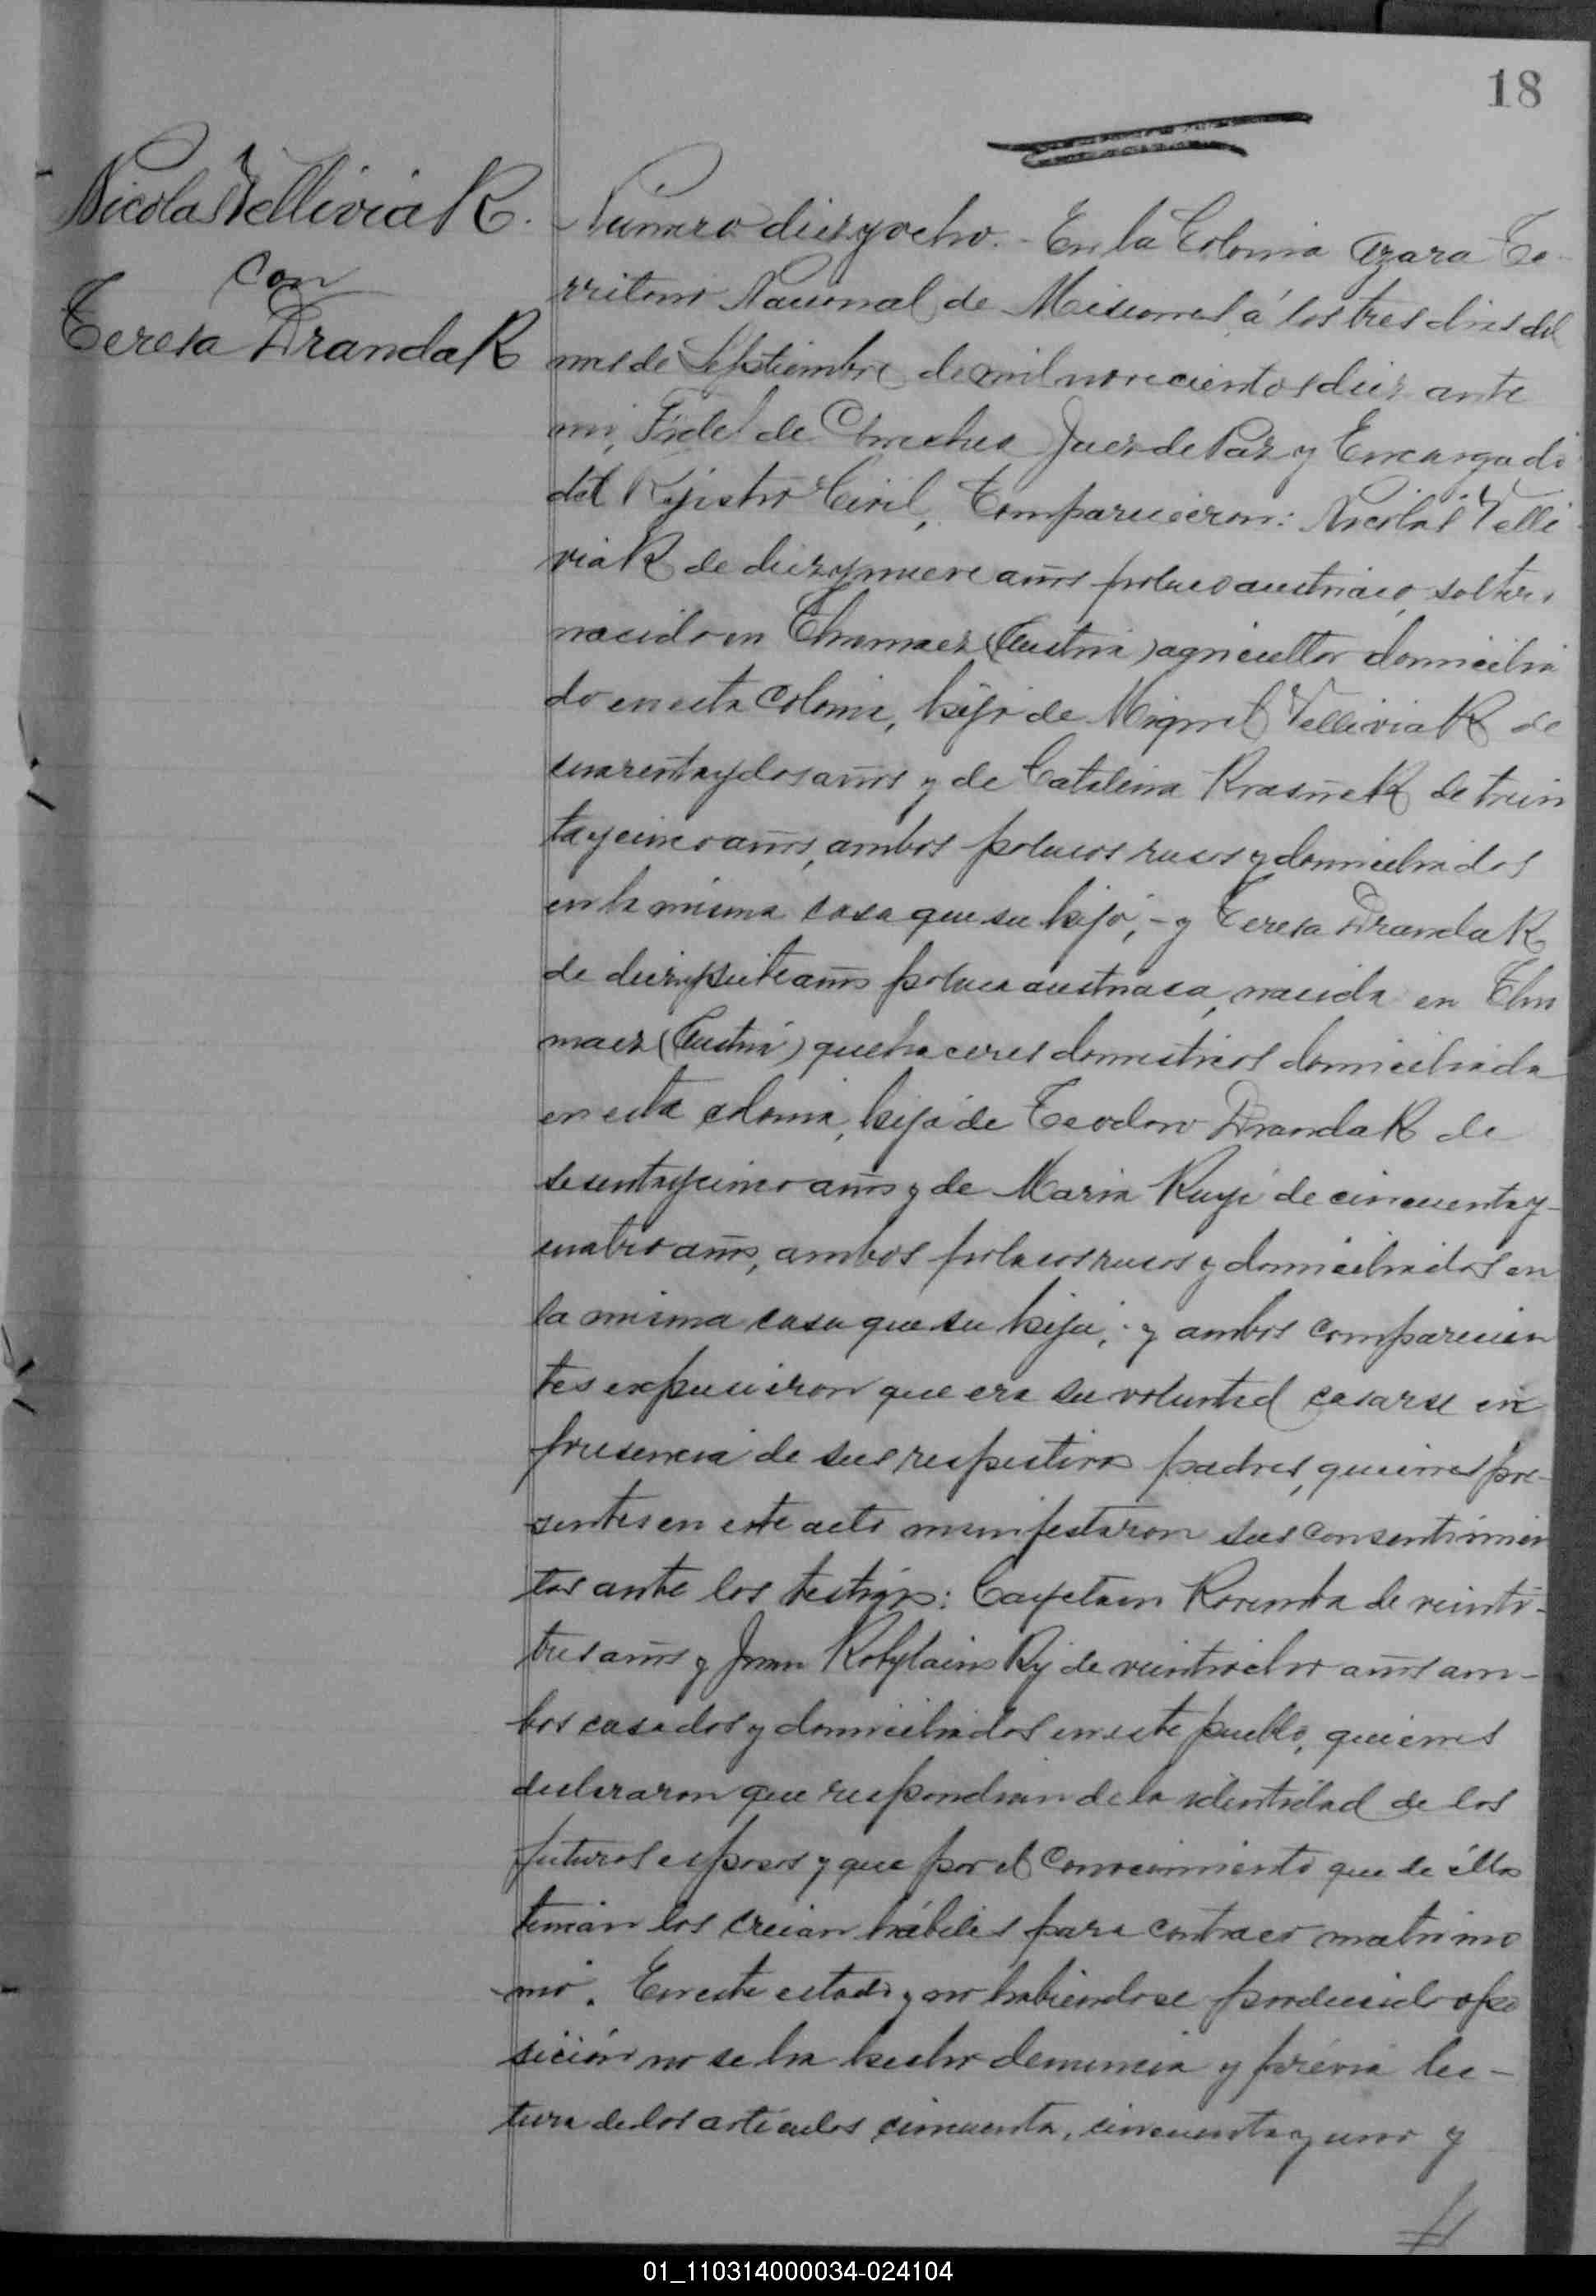 18
Nicolas Velliviak.
con
Teresa Drandak
Número diez y ocho.- En la Colonia Azara Te-
rritorio Nacional de Misiones á los tres dias del
mes de Septiembre de mil novecientos diez ante
mi, Fidel de Juez de Paz y Encargado
del Rejistro Civil, Comparecieron: Nicolás Velli
viak de diez y nueve años polaco austriaco, soltero
nacido en (Austria) agricultor domicilia
do en esta Colonia, hijo de Miguel Velliviak de
cuarenta y dos años y de Catalina de trein
ta y cinco años, ambos polacos rusos y domiciliados
en la misma casa que su hijo;- y Teresa Drandak
de diez y siete años polaca austriaca, nacida en
(Austria) quehaceres domesticos domiciliada
en esta colonia, hija de Teodoro Drandak de
sesenta y cinco años y de Maria de cincuenta y-
cuatro años, ambos polacos rusos y domiciliados en
la misma casa que su hija;- y ambos comparecien
tes expusieron que era su voluntad casarse en
presencia de sus respectivos padres, quienes pre-
sentes en este acto manifestaron sus consentimien
tos ante los testigos: Cayetano de veinti-
tres años y Juan de veintiocho años am-
bos casados y domiciliados en este pueblo, quienes
declararon que respondian de la identidad de los
futuros esposos y que por el conocimiento que de éllos
tenian los creian hábiles para contraer matrimo
nio. En este estado y no habiendose producido opo
sición no se ha hecho denuncia y prévia lec-
tura de los articulos cincuenta, cincuenta y uno y
01_110314000034-024104